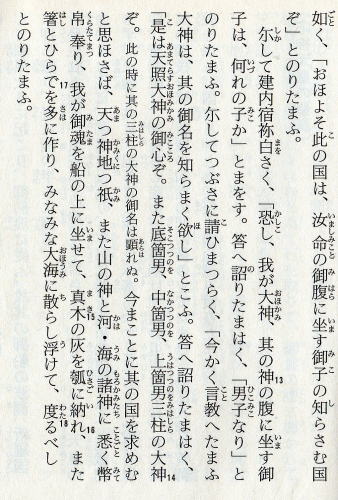 如く、「おほよそ此の国は、汝命の御腹に坐す御子の知らさむ国
ぞ」とのりたまふ。
尓して建内宿祢白さく、「恐し、我が大神、其の神の腹に坐す御
子は、何れの子か」とまをす。答へ詔りたまはく、「男子なり」と
のりたまふ。尓してつぶさに請ひまつらく、「今かく言教へたまふ
大神は、其の御名を知らまく欲し」とこふ。答へ詔りたまはく、
「是は天照大神の御心ぞ。また底箇男、中箇男、上箇男三柱の大神
ぞ。此の時に其の三柱の大神の御名は顕れぬ。今まことに其の国を求めむ
と思ほさば、天つ神地つ祇、また山の神と河・海の諸神に悉く幣
帛奉り、我が御魂を船の上に坐せて、真木の灰を瓠に納れ、また
箸とひらでを多に作り、みなみな大海に散らし浮けて、度るべし
とのりたまふ。